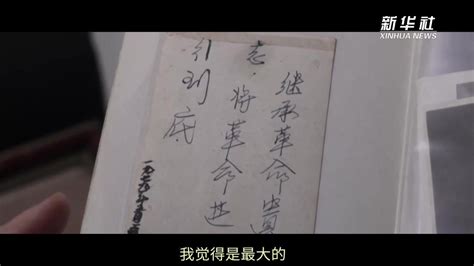 新华社
XINHUA NEWS
继承革命遗
志，将革命进
行到底
我觉得是最大的